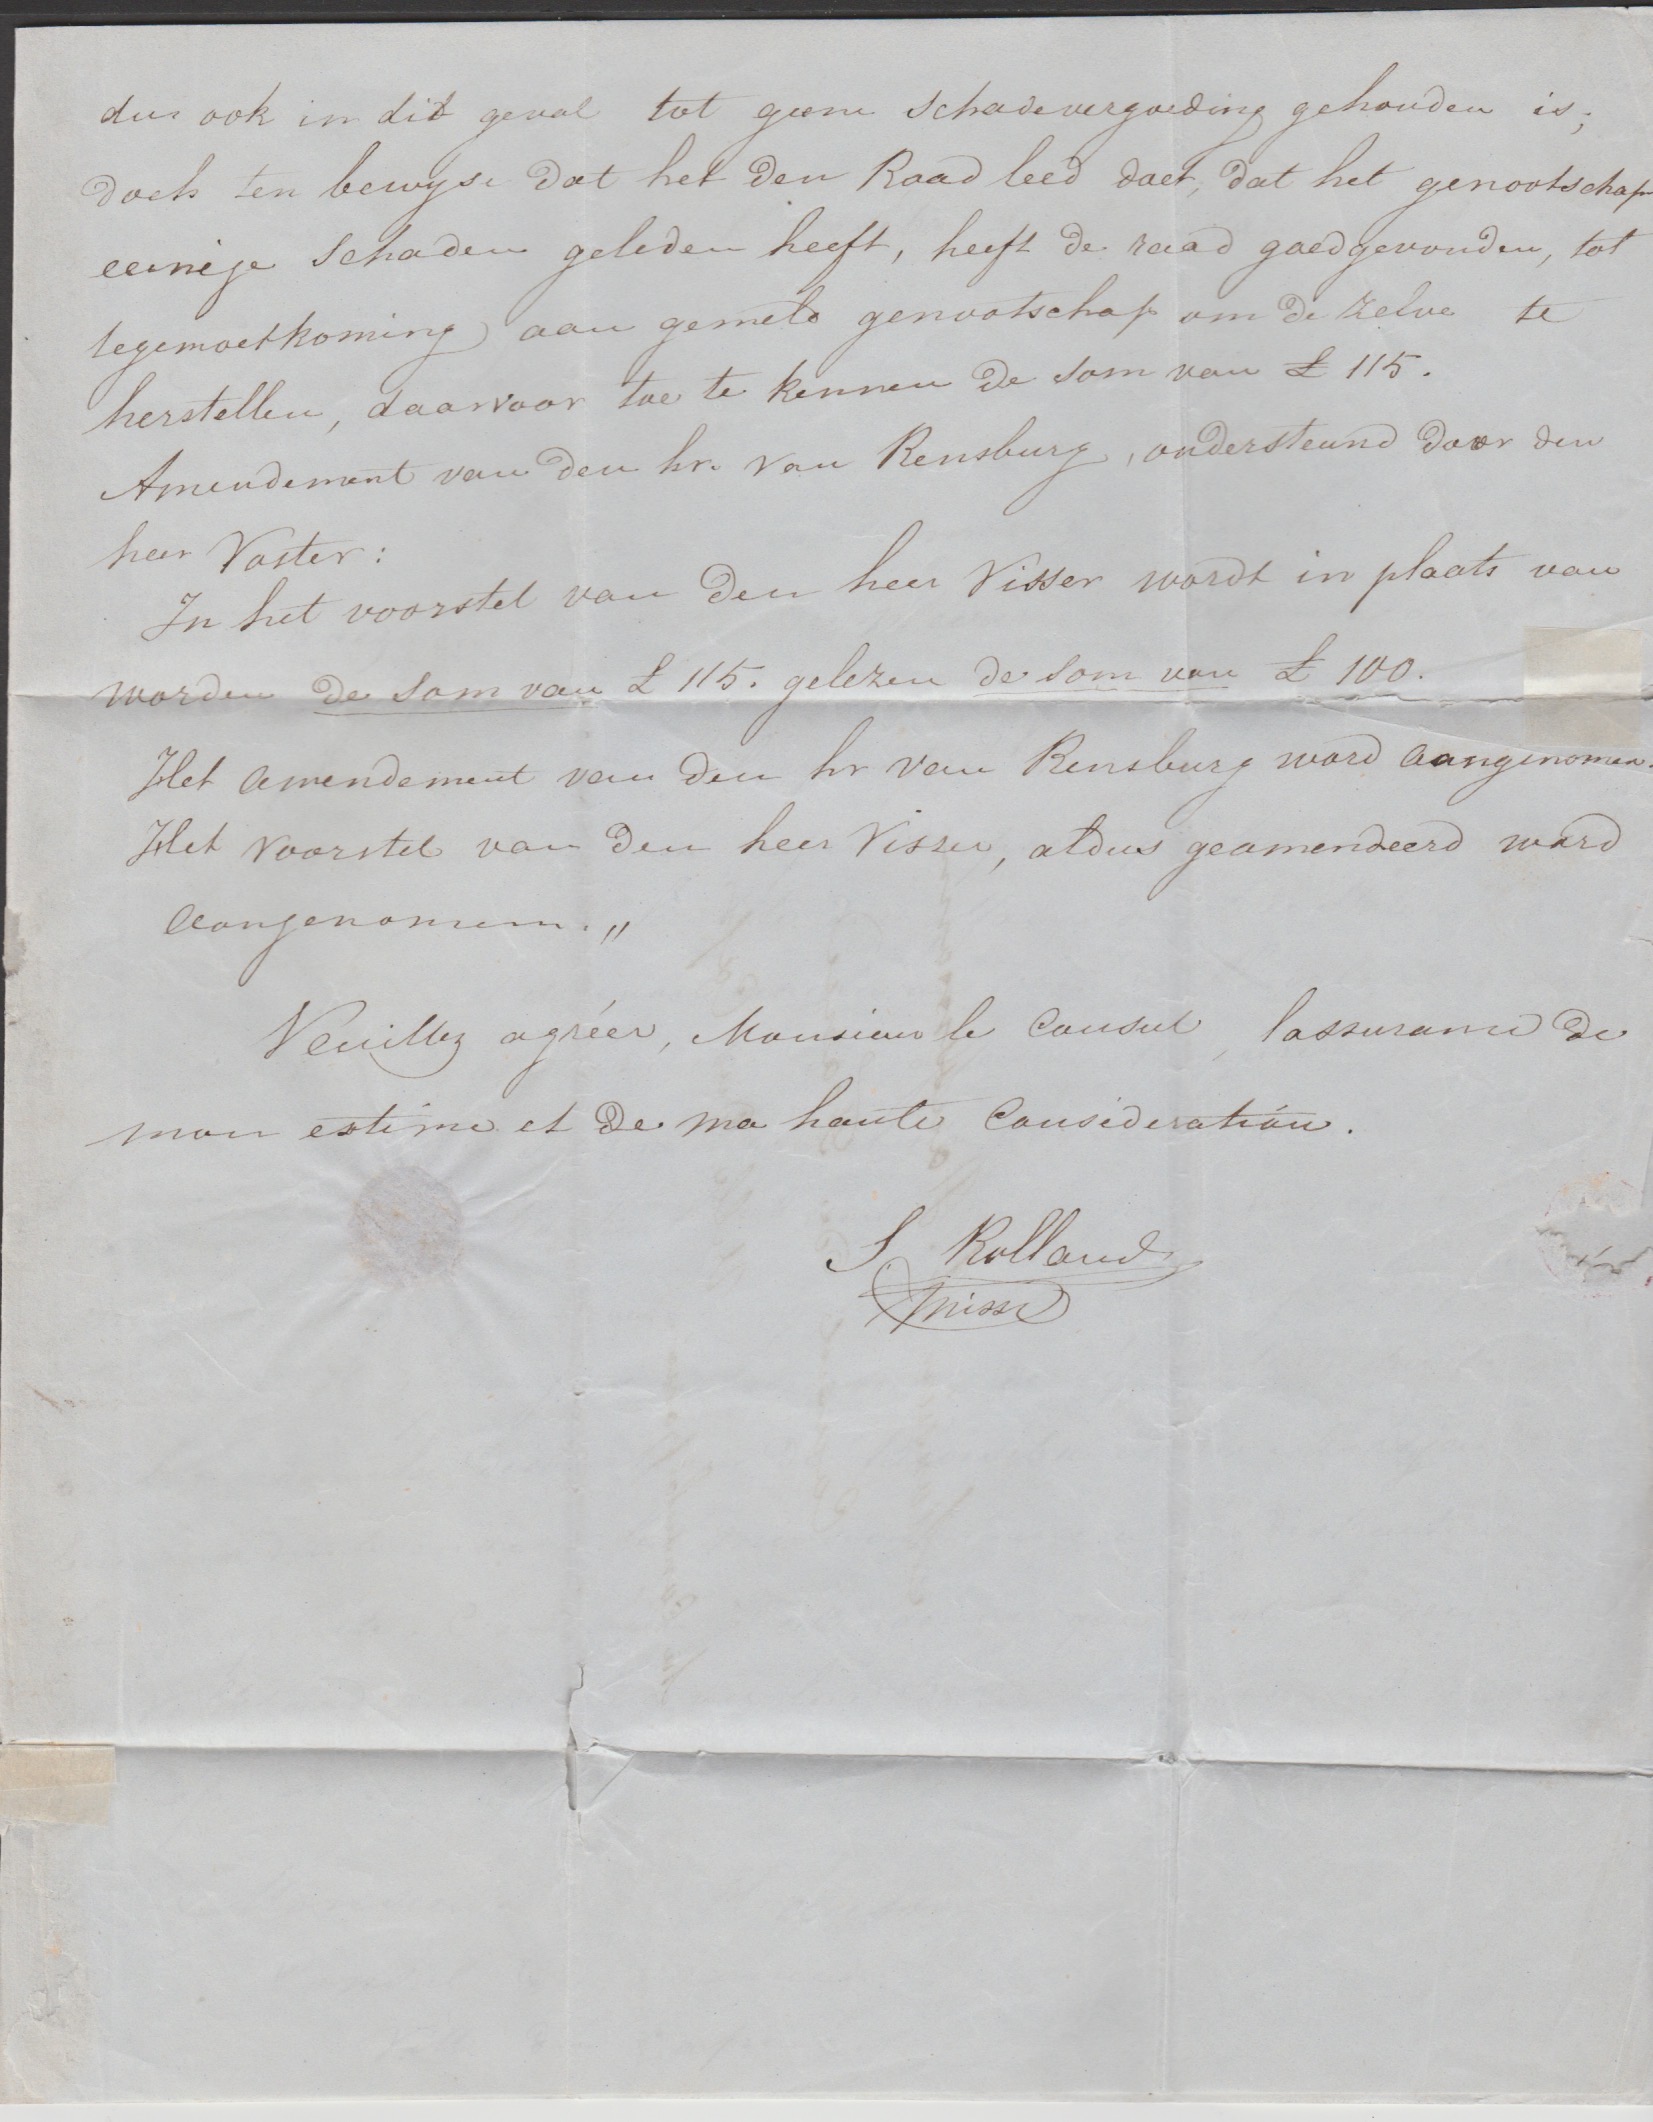 dus ook in dit geval tot geene schadevergoeding gehouden is;
doch ten bewyse dat het den Raad leed doet, dat het genootschap
eenige schaden geleden heeft, heeft de raad goedgevonden, tot
tegemoetkoming aan gemeld genootschap om de zelve te
herstellen, daarvoor toe te kennen de som van £ 115.
Amendement van den hr. van Rensburg, ondersteund door den
heer Voster:
In het voorstel van den heer Visser wordt in plaats van
worden de som van £ 115. gelezen de som van £ 100.
Het amendement van den hr van Rensburg word aangenomen.
Het voorstel van den heer Visser, aldus geamendeerd word
aangenomen. "
Veuillez agréer, Monsieur le Consul, lassurance de
mon estime et de ma haute consideration.
S Rolland
Misse